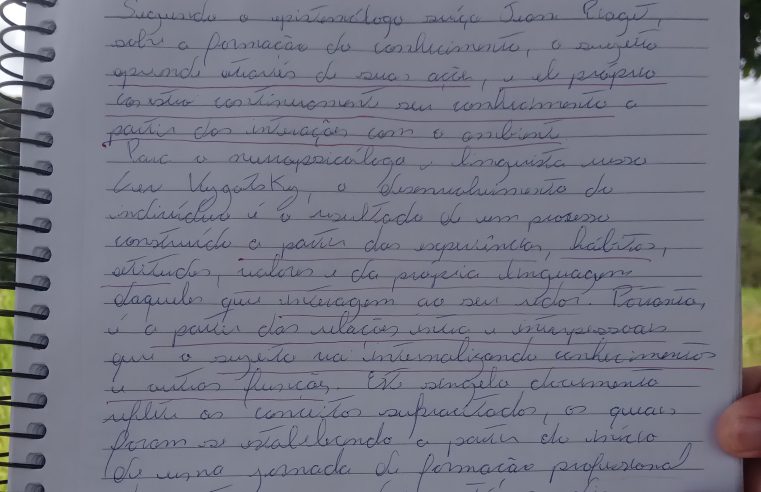 Segundo o epistemólogo suíço Jean Piaget,
sobre a formação do conhecimento, o sujeito
aprende através de suas ações, e ele próprio
constrói continuamente seu conhecimento a
partir das interações com o ambiente.
Para o neuropsicólogo e linguista russo
Lev Vygotsky, o desenvolvimento do
indivíduo é o resultado de um processo
construído a partir das experiências, hábitos,
atitudes, valores e da própria linguagem
daqueles que interagem ao seu redor. Portanto,
é a partir das relações intra e interpessoais
que o sujeito vai internalizando conhecimentos
e outras funções. Este singelo documento
reflete os conceitos supracitados, os quais
foram se estabelecendo a partir do início
de uma jornada de formação profissional